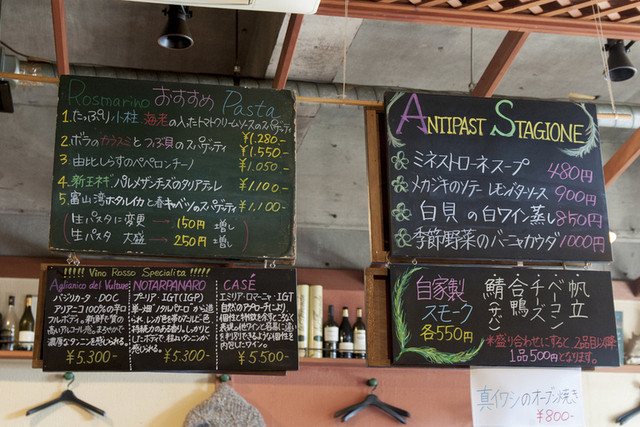 Rosmarino おすすめ Pasta
1. たっぷり小柱、海老の入ったトマトクリームソースのスパゲッティ ¥1.280-
2. ボラのカラスミとつぶ貝のスパゲッティ ¥1.550-
3. 由比しらすのペペロンチーノ ¥1.050-
4. 新玉ネギ パルメザンチーズのタリアテレ ¥1.100-
5. 富山湾ホタルイカと春キャベツのスパゲッティ ¥1.100-
生パスタに変更 → 150円 増し
生パスタ 大盛 → 250円 増し
ANTIPAST STAGIONE
ミネストローネスープ 480円
メカジキのソテー レモンバターソース 900円
白貝の白ワイン蒸し 850円
季節野菜のバーニャカウダ 1000円
!!!!! Vino Rosso Specialita !!!!!
Aglianico del Vulture
バジリカータ・DOC
アリアニコ100%の辛口
フルボディ。
高いアルコール感。まろやかで
濃厚なタンニンを感じられる。
¥5.300-
NOTARPANARO
プーリア・IGT(IGP)
感じられる。
¥5.300-
CASÉ
エミリア・ロマーニャ・IGT
自然のアプローチにより
内包したワイン。
¥5500-
自家製
スモーク
各550円
鯖(サバ)
合鴨
チーズ
ベーコン
帆立
※盛り合わせにすると、2品目以降
1品500円となります。
真イワシのオーブン焼き
¥800-